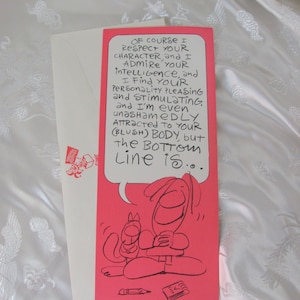 OF COURSE I
RESPECT YOUR
CHARACTER, and I
ADMIRE YOUR
INTELLIGENCE, and
I FIND YOUR
PERSONALITY PLEASING
and STIMULATING,
and I'm EVEN
UNASHAMEDLY
ATTRACTED TO YOUR
(BLUSH) BODY but
the BOTTOM
LINE iS...